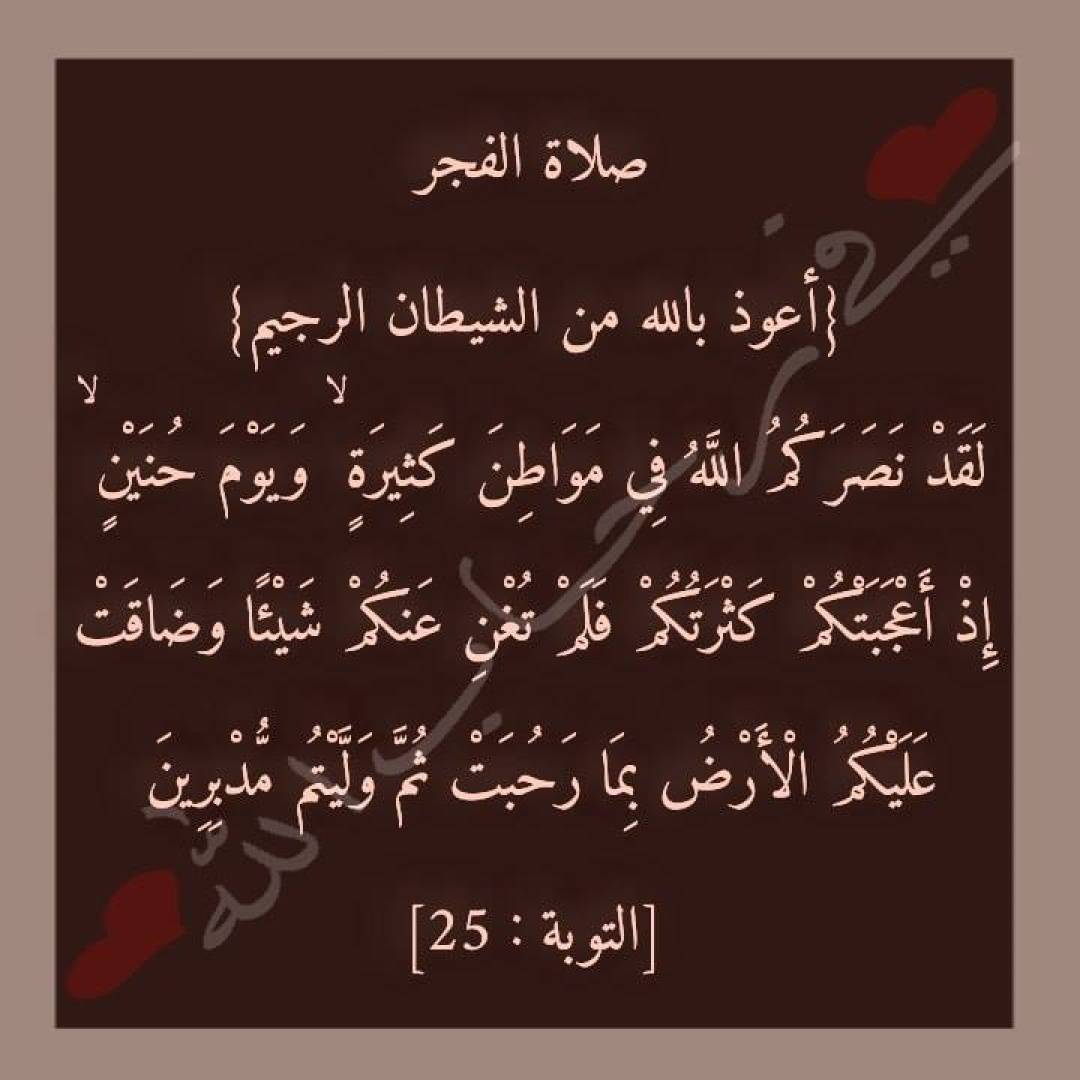 صلاة الفجر
{أعوذ بالله من الشيطان الرجيم}
لَقَدْ نَصَرَكُمُ اللَّهُ فِي مَوَاطِنَ كَثِيرَةٍ ۙ وَيَوْمَ حُنَيْنٍ ۙ
إِذْ أَعْجَبَتْكُمْ كَثْرَتُكُمْ فَلَمْ تُغْنِ عَنكُمْ شَيْئًا وَضَاقَتْ
عَلَيْكُمُ الْأَرْضُ بِمَا رَحُبَتْ ثُمَّ وَلَّيْتُم مُّدْبِرِينَ
[التوبة : 25]